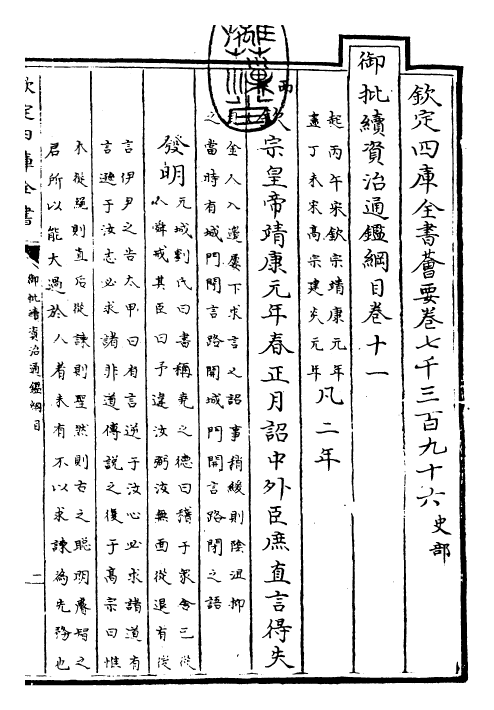 欽定四庫全書薈要卷七千三百九十六史部
御批續資治通鑑綱目卷十一
起丙午宋欽宗靖康元年
盡丁未宋高宗建炎元年凡二年
丙午
欽宗皇帝靖康元年春正月詔中外臣庶直言得失
自金人入邊屢下求言之詔事稍緩則陰沮抑
之當時有城門閉言路開城門開言路閉之語
發明元城劉氏曰書稱堯之德曰稽于衆舍己從
人舜戒其臣曰予違汝弼汝無面從退有後
言伊尹之告太甲曰有言逆于汝心必求諸道有
言遜于汝志必求諸非道傅說之復于高宗曰惟
木從繩則直后從諫則聖然則古之聰明睿智之
君所以能大過於人者未有不以求諫為先務也
欽定四庫全書
御批續資治通鑑綱目